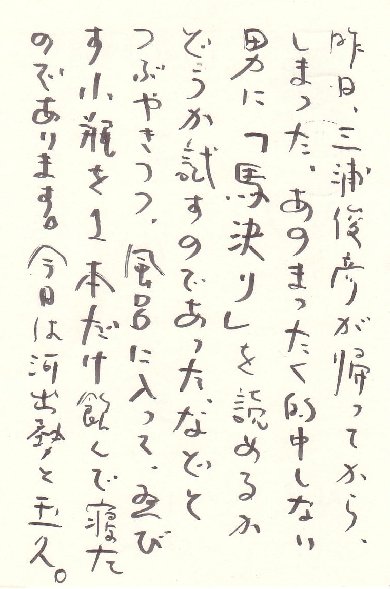 昨日、三浦俊彦が帰ってから、
しまった、あのまったく的中しない
男に「馬決り」を読めるか
どうか試すのであった、などと
つぶやきつつ、風呂に入って、ゑび
す小瓶を1本だけ飲んで寝た
のであります。今日は河出勢と玉久。